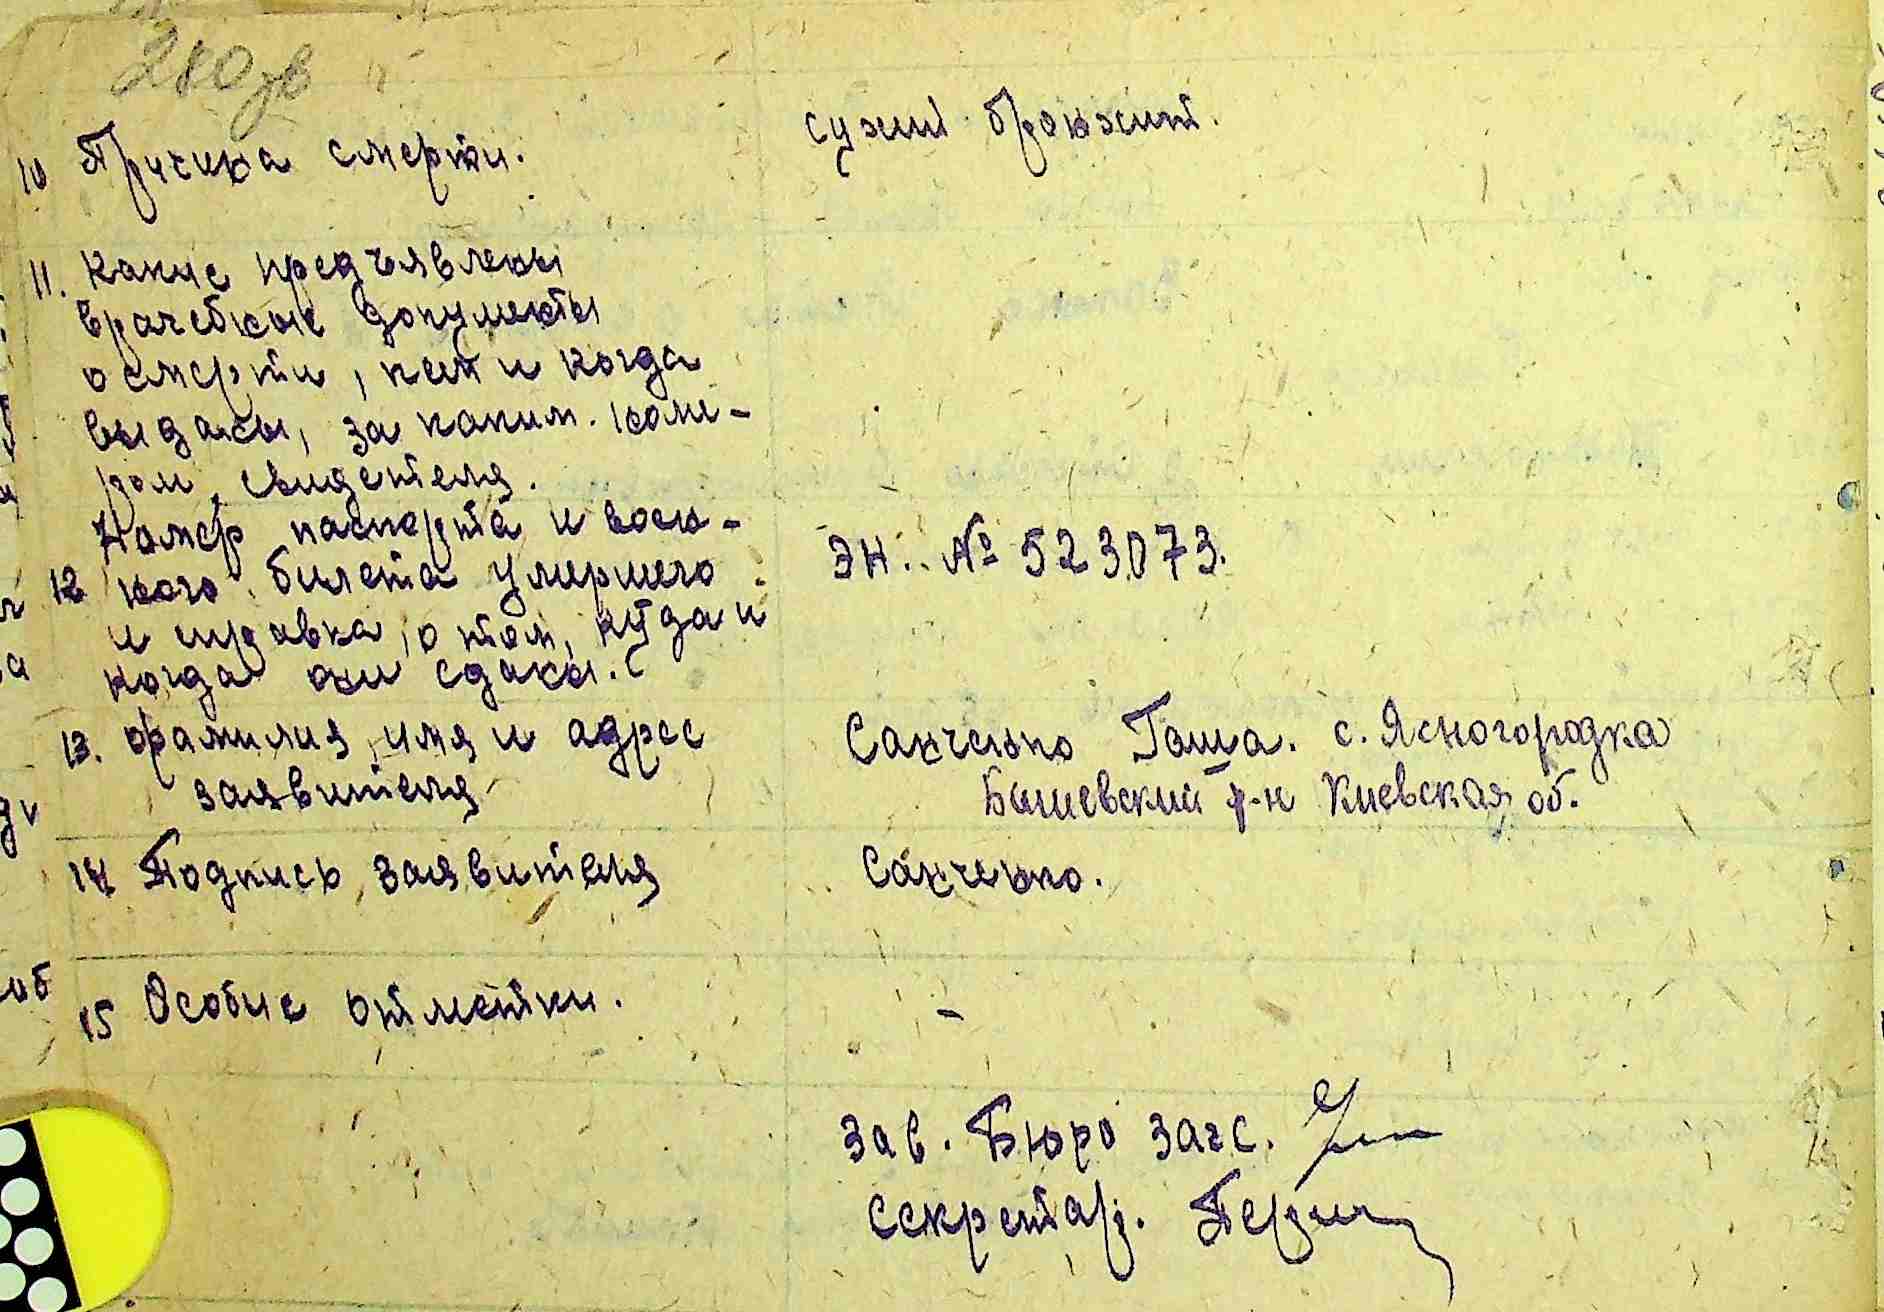 280 зв
10 Причина смерти.
сухий бронхит.
11. Какие предъявлены
врачебные документы
о смерти, кем и когда
выданы, за каким номе-
ром, свидетеля.
Номер паспорта и воен-
12 ного билета умершего
и справка о том, куда и
когда они сданы.
ЭН. № 523073.
13. Фамилия, имя и адрес
заявителя
Санченко Гаша. с. Ясногородка
Бышевский р-н Киевская об.
14 Подпись заявителя
Санченко.
15 Особие отметки.
-
Зав. Бюро загс.
Секретарь.